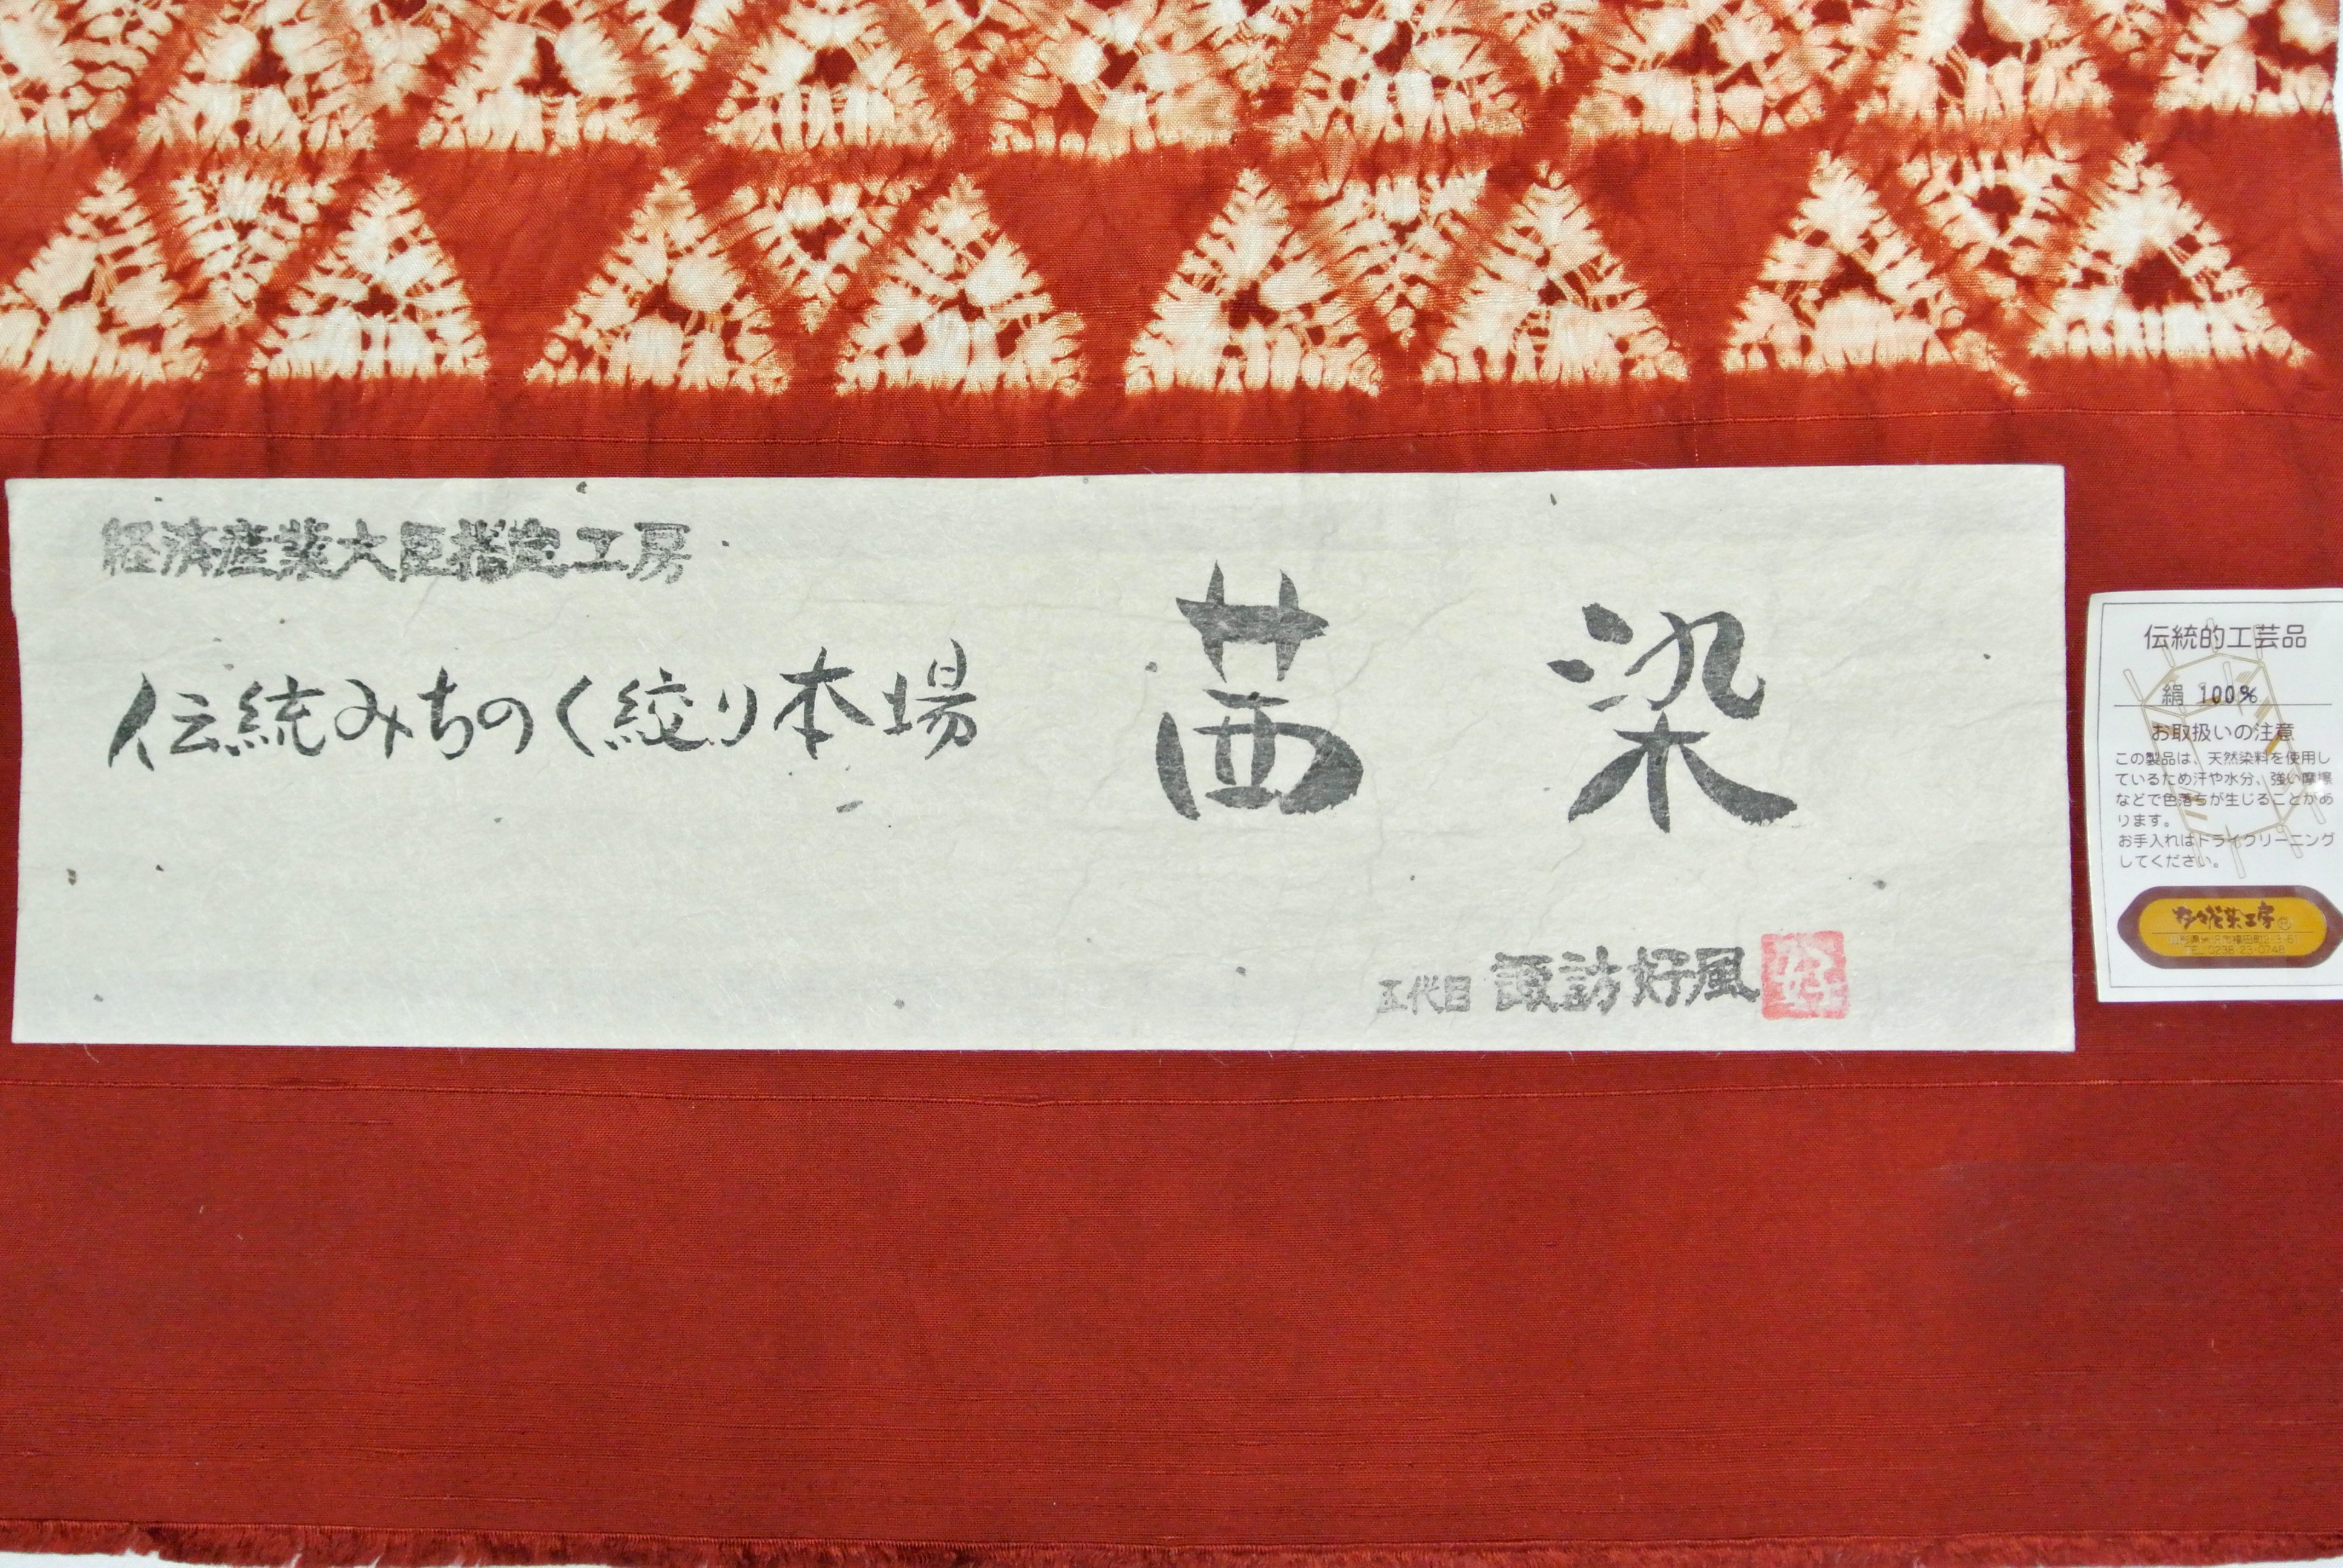 経済産業大臣指定工房
伝統みちのく絞り本場
茜染
五代目 諏訪好風
好
伝統的工芸品
絹 100%
お取扱いの注意
この製品は、天然染料を使用し
ているため汗や水分、強い摩擦
などで色落ちが生じることがあ
ります。
お手入れはドライクリーニング
してください。
工房
TEL 0238-23-0748